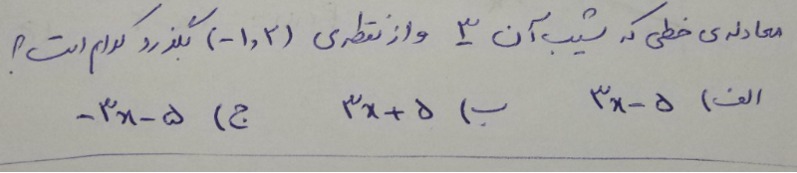 معادله‌ی خطی که شیب آن ۳ و از نقطه‌ی (-۱,۲) بگذرد کدام است؟
الف) ۳x-۵ ب) ۳x+۵ ج) -۳x-۵